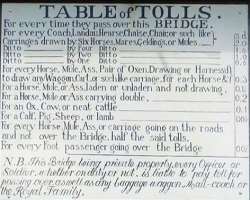 TABLE of TOLLS.
For every time they pass over this BRIDGE.
For every Coach, Landau, Hearse, Chaise, Chair, or such like
Carriages drawn by Six Horses, Mares, Geldings, or Mules
Ditto by Four Ditto
Ditto by Two Ditto
Ditto by One Ditto
For every Horse, Mule, Ass, Pair of Oxen, Drawing or Harness'd
to draw any Waggon, Cart, or such like carriage, for each Horse &c
For a Horse, Mule, or Ass, laden or unladen and not drawing
For a Horse, Mule, or Ass carrying double
For an Ox, Cow, or neat cattle
For a Calf, Pig, Sheep, or lamb
For every Horse, Mule, Ass, or carriage going on the roads
and not over the Bridge, half the said tolls.
For every foot passenger going over the Bridge
N.B. This Bridge being private property, every Officer or
Soldier, whether on duty or not, is liable to pay toll for
passing over, as well as any baggage waggon, Mail-coach or
the Royal Family.